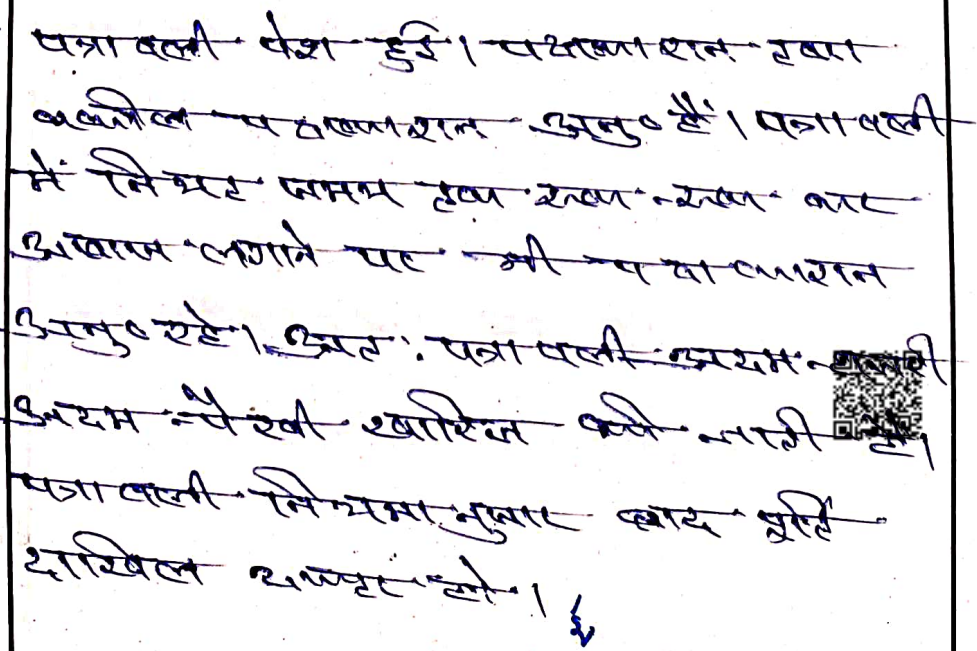 पत्रावली पेश हुई। पक्षकारान तथा
वकील पक्षकारान अनु० हैं। पत्रावली
में नियत समय तक रूक-रूक कर
आवाज लगाने पर भी पक्षकारान
अनु० रहे। अत: पत्रावली अदम
अदम पैरवी खारिज की जाती है।
पत्रावली नियमानुसार बाद पूर्ति
दाखिल दफ्तर हो।